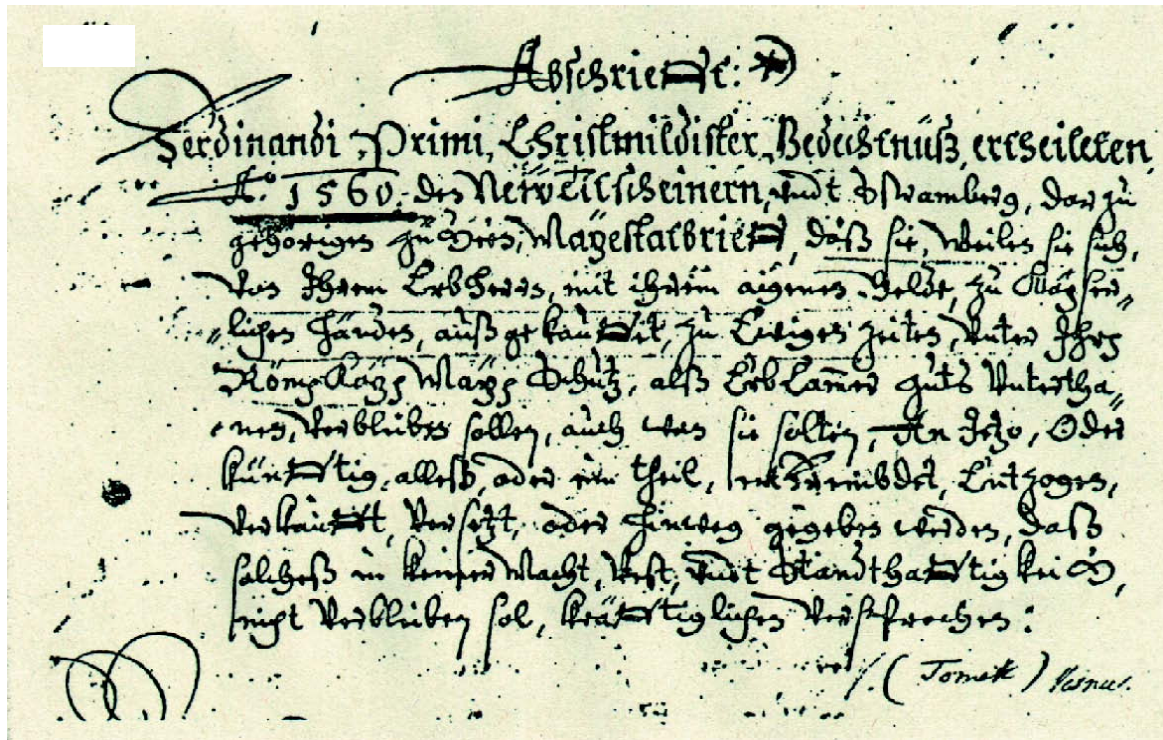 Abschriefft:
Ferdinandi Primi, Christmildister Gedechtnuß, ertheileten
A:o 1560. den Neroetitscheinern, undt Wramberg, darzu
gehörigen zu Mayestatbrieff, daß sie, weilen sie sich,
Von Ihrem Erbherrn, mit ihrem aigenen Gelde, zu Kayser„
„lichen Händen, außgekaufft, zu Ewigen zeiten, Unter Ihrer
Röm: Kay: May: Schutz, alß Erb Cammer guts Untertha„
nen, Verbleiben sollen, auch wan sie solten, An Jetzo, Oder
künfftig, alleß, oder ein theil, Entzogen,
Verkaufft, Versetzt, oder hinweg gegeben werden, daß
solcheß in keiner Macht, Vest, undt Standthafftigkeit,
nicht Verbleiben sol, kräfftiglichen Versprochen:
(Tomek)